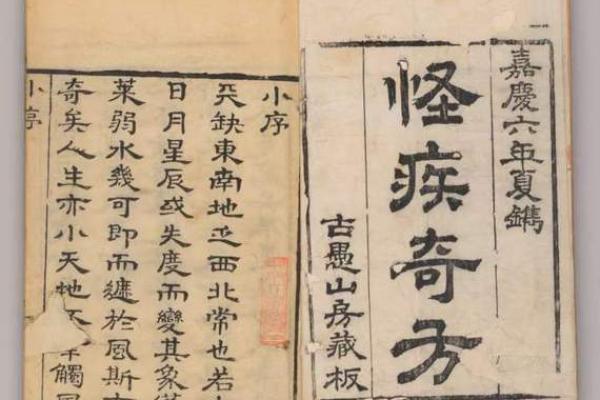 嘉慶六年夏鐫
怪疾奇方
古愚山房藏板
小序
天缺東南地西北常也若
日月星辰或失度而變其象
萊弱水幾可即而纏於風斯
奇矣人生亦小天地觸
小序